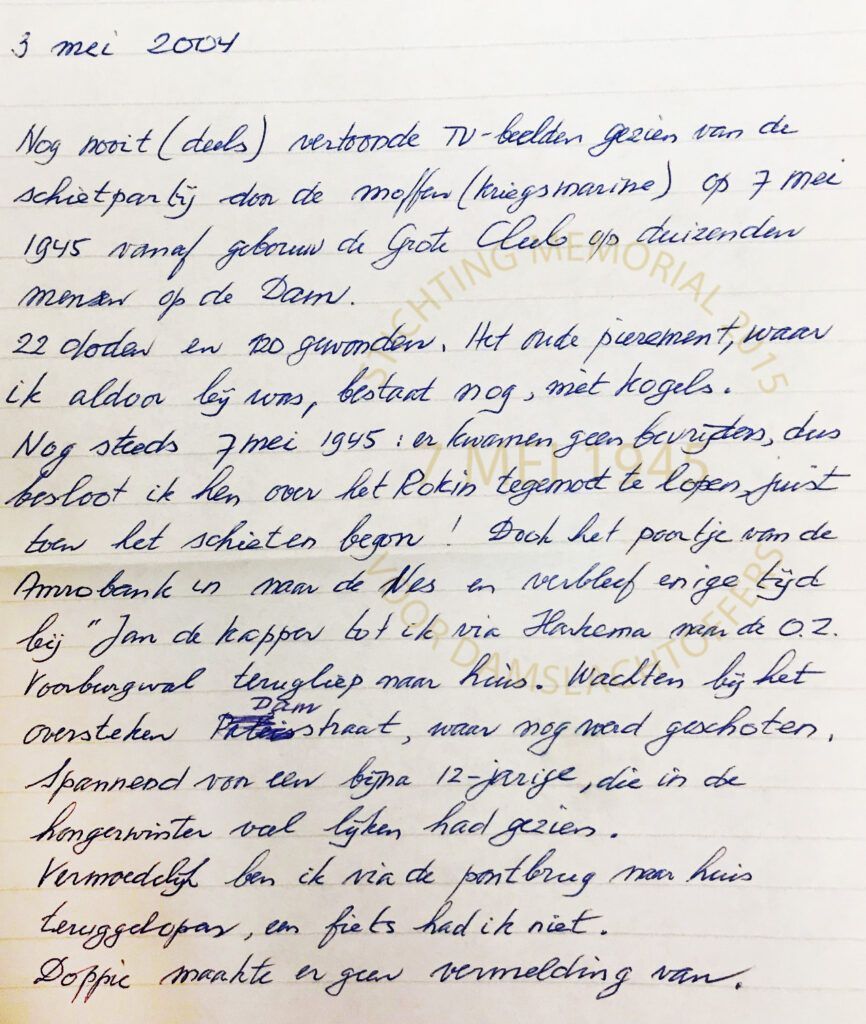 3 mei 2004
Nog nooit (deels) vertoonde TV-beelden gezien van de
schietpartij door de moffen (kriegsmarine) op 7 mei
1945 vanaf gebouw de Grote Club op duizenden
mensen op de Dam.
22 doden en 120 gewonden. Het oude pierement, waar
ik aldoor bij was, bestaat nog, mèt kogels.
Nog steeds 7 mei 1945: er kwamen geen bevrijders, dus
besloot ik hen over het Rokin tegemoet te lopen, juist
toen het schieten begon! Dook het poortje van de
Amrobank in naar de Nes en verbleef enige tijd
bij "Jan de kapper tot ik via Harkema naar de O.Z.
Voorburgwal terugliep naar huis. Wachten bij het
oversteken Damstraat, waar nog werd geschoten.
Spannend voor een bijna 12-jarige, die in de
hongerwinter veel lijken had gezien.
Vermoedelijk ben ik via de pontbrug naar huis
teruggelopen, een fiets had ik niet.
Doppie maakte er geen vermelding van.
STICHTING MEMORIAL 2015
7 MEI 1945
VOOR DAMSLACHTOFFERS